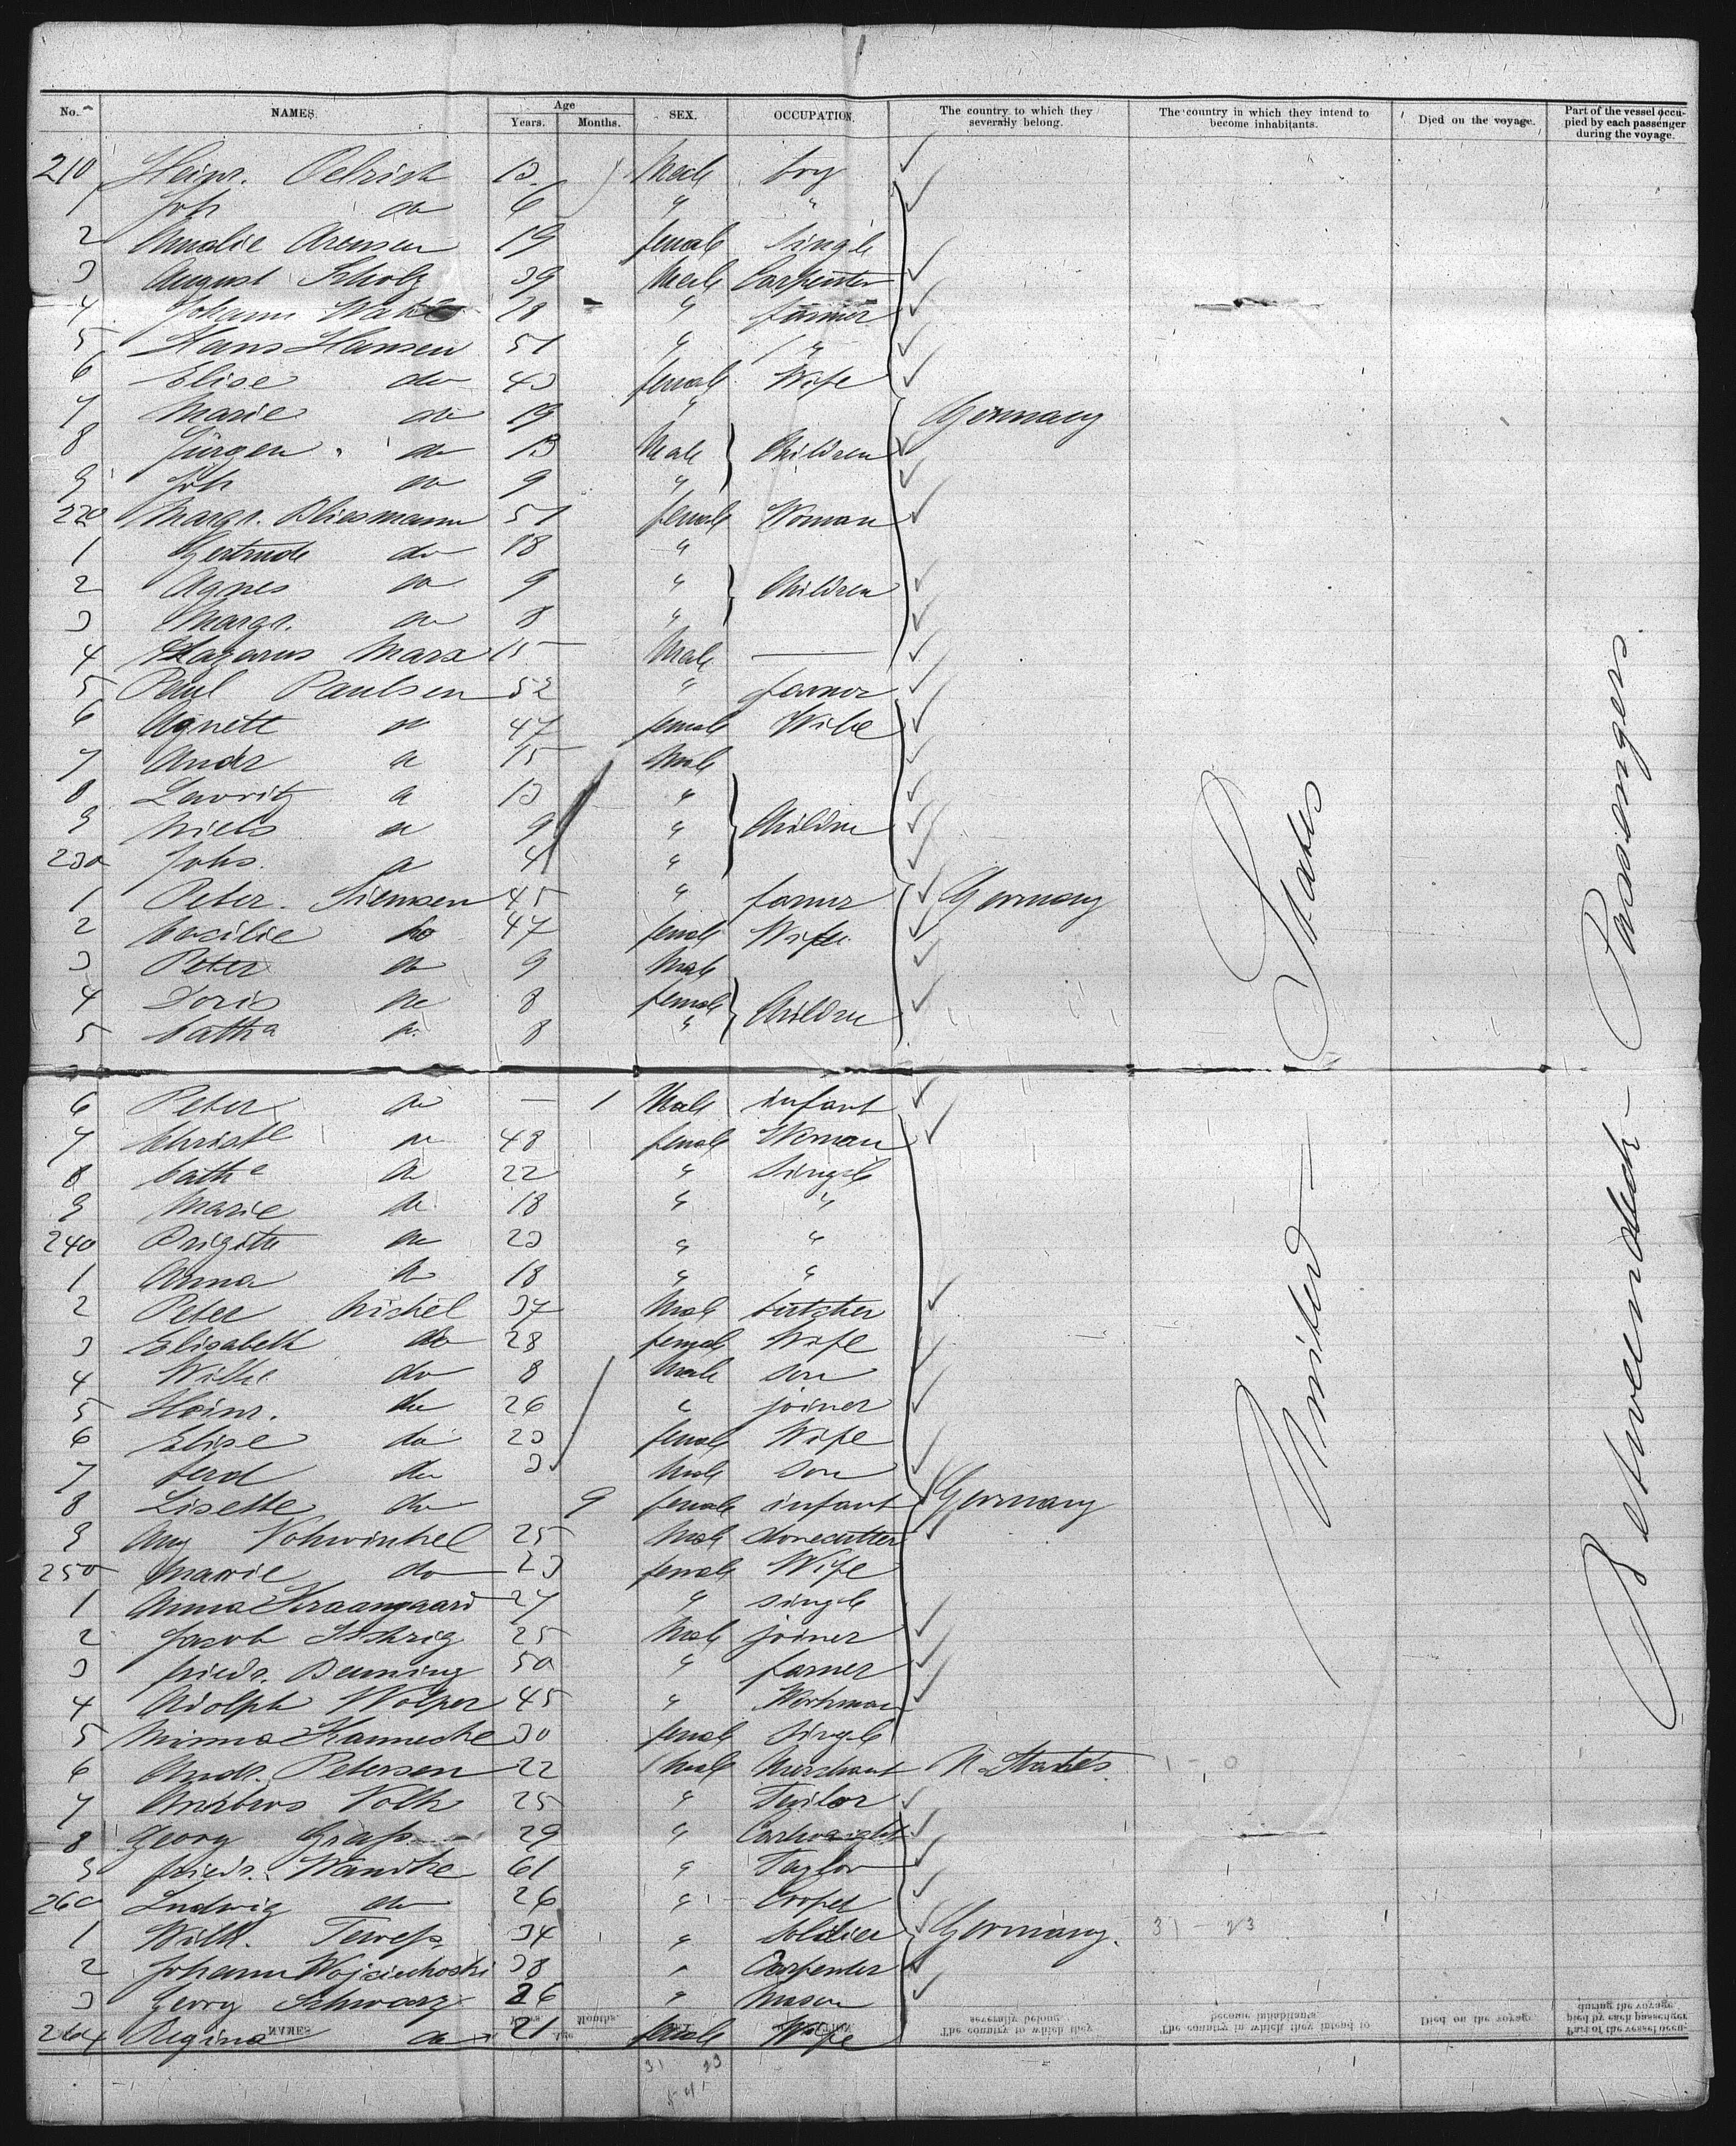 No. NAMES. Age Years. Months. SEX. OCCUPATION. The country to which they severally belong. The country in which they intend to become inhabitants. Died on the voyage. Part of the vessel occupied by each passenger during the voyage.
210 Heinr. Oelrich 13 Male boy
1 Joh do 6 " "
2 Amalie Arensen 19 female single
3 August Scholz 39 Male Carpenter
4 Johann 28 " farmer
5 Hans Hansen 51 " "
6 Elise do 43 female Wife
7 Marie do 19 " Germany
8 Jürgen do 13 Male Children
9 Joh do 9 "
220 Margr. Bliesmann 51 female Woman
1 Gertrude do 18 "
2 Agnes do 9 " Children
3 Margr. do 8 "
4 Lazarus Marx 15 Male —
5 Paul Paulsen 52 " farmer
6 Agnete do 47 female Wife
7 Andr do 15 Male
8 Lavritz do 13 "
9 Niels do 9 " Children
230 Johs. do 4 "
1 Peter Siemsen 45 " farmer Germany
2 Cacilie do 47 female Wife
3 Peter do 9 Male
4 Doris do 8 female Children
5 Catha do 8 "
6 Peter do — 1 Male infant
7 Christe do 48 female Woman
8 Cathe do 22 " Single
9 Marie do 18 " "
240 Brigitte do 23 " "
1 Anna do 18 " "
2 Peter Michel 37 Male butcher
3 Elisabeth do 28 female Wife
4 Wilh. do 8 Male son
5 Heinr. do 26 " joiner
6 Elise do 23 female Wife
7 ferd do 3 Male son
8 Lisette do 9 female infant Germany
9 Aug Vohwinkel 25 Male stonecutter
250 Marie do 23 female Wife
1 Anna Kraangaard 27 " single
2 Jacob 25 Male joiner
3 friedr. Benning 50 " farmer
4 Adolph Wolper 45 " Workman
5 Minna Kannecke 30 female single
6 Andr. Petersen 22 Male Merchant U. States 1 - 0
7 Volk 25 " Tailor
8 Georg Grass 29 " Cartwright
9 friedr. Wandke 61 " Taylor
260 Ludwig do 26 " Cooper
1 Wilh. Tewess 34 " Soldier Germany. 31 - 23
2 Johann Wojciechoski 38 " Carpenter
3 Georg Schwarz 26 " Mason
264 Regina do 21 female Wife
31 23
United States
Betweendeck Passengers.